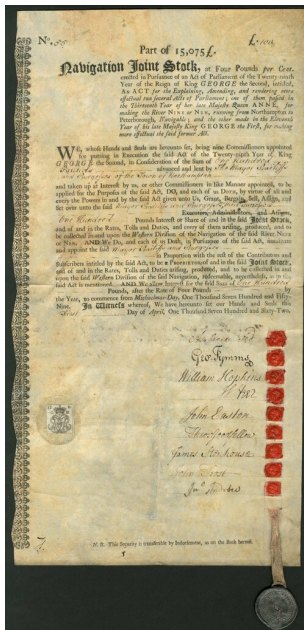 Nº
Part of 15,075£.
Navigation Joint Stock, at Four Pounds per Cent.
erected in Pursuance of an Act of Parliament of the Twenty-ninth
Year of the Reign of King GEORGE the Second, intitled,
An ACT for the Explaining, Amending, and rendering more
effectual two several Acts of Parliament; one of them passed in
the Thirteenth Year of her late Majesty Queen ANNE, for
making the River NINE or NEN, running from Northampton to
Peterborough, Navigable; and the other made in the Eleventh
Year of his late Majesty King GEORGE the First, for making
more effectual the said former Act.
WE, whose Hands and Seals are hereunto set, being nine Commissioners appointed
for putting in Execution the said Act of the Twenty-ninth Year of King
GEORGE the Second, in Consideration of the Sum of One Hundred
Pounds advanced and lent by The Mayor Bailiffs
and Burgesses of the Town of Northampton
and taken up at Interest by us, or other Commissioners in like Manner appointed, to be
applied for the Purposes of the said Act, DO, and each of us DOTH, by virtue of all and
every the Powers in and by the said Act given unto Us, Grant, Bargain, Sell, Assign, and
Set over unto the said Mayor Bailiffs and Burgesses
Executors, Administrators, and Assigns,
One Hundred Pounds Interest or Share of and in the said Joint Stock,
and of and in the Rates, Tolls and Duties, and every of them arising, produced, and to
be collected in and upon the Western Division of the Navigation of the said River NINE
or NEN, AND WE DO, and each of us DOTH, in Pursuance of the said Act, nominate
and appoint the said Mayor Bailiffs and Burgesses
in Proportion with the rest of the Contributors and
Subscribers intitled by the said Act, to be a PROPRIETOR, of and in the said Joint Stock,
and of and in the Rates, Tolls and Duties arising, produced, and to be collected in and
upon the said Western Division of the said Navigation, redeemable, nevertheless, as in the
said Act is mentioned. AND WE allow Interest for the said Sum of One Hundred
Pounds, after the Rate of Four Pounds by
the Year, to commence from Michaelmas-Day, One Thousand Seven Hundred and Fifty-
Nine. In Witness whereof, We have hereunto set our Hands and Seals this
First Day of April, One Thousand Seven Hundred and Sixty-Two.
William Hopkins
James Stonhouse
N. B. This Security is transferable by Indorsement, as on the Back hereof.